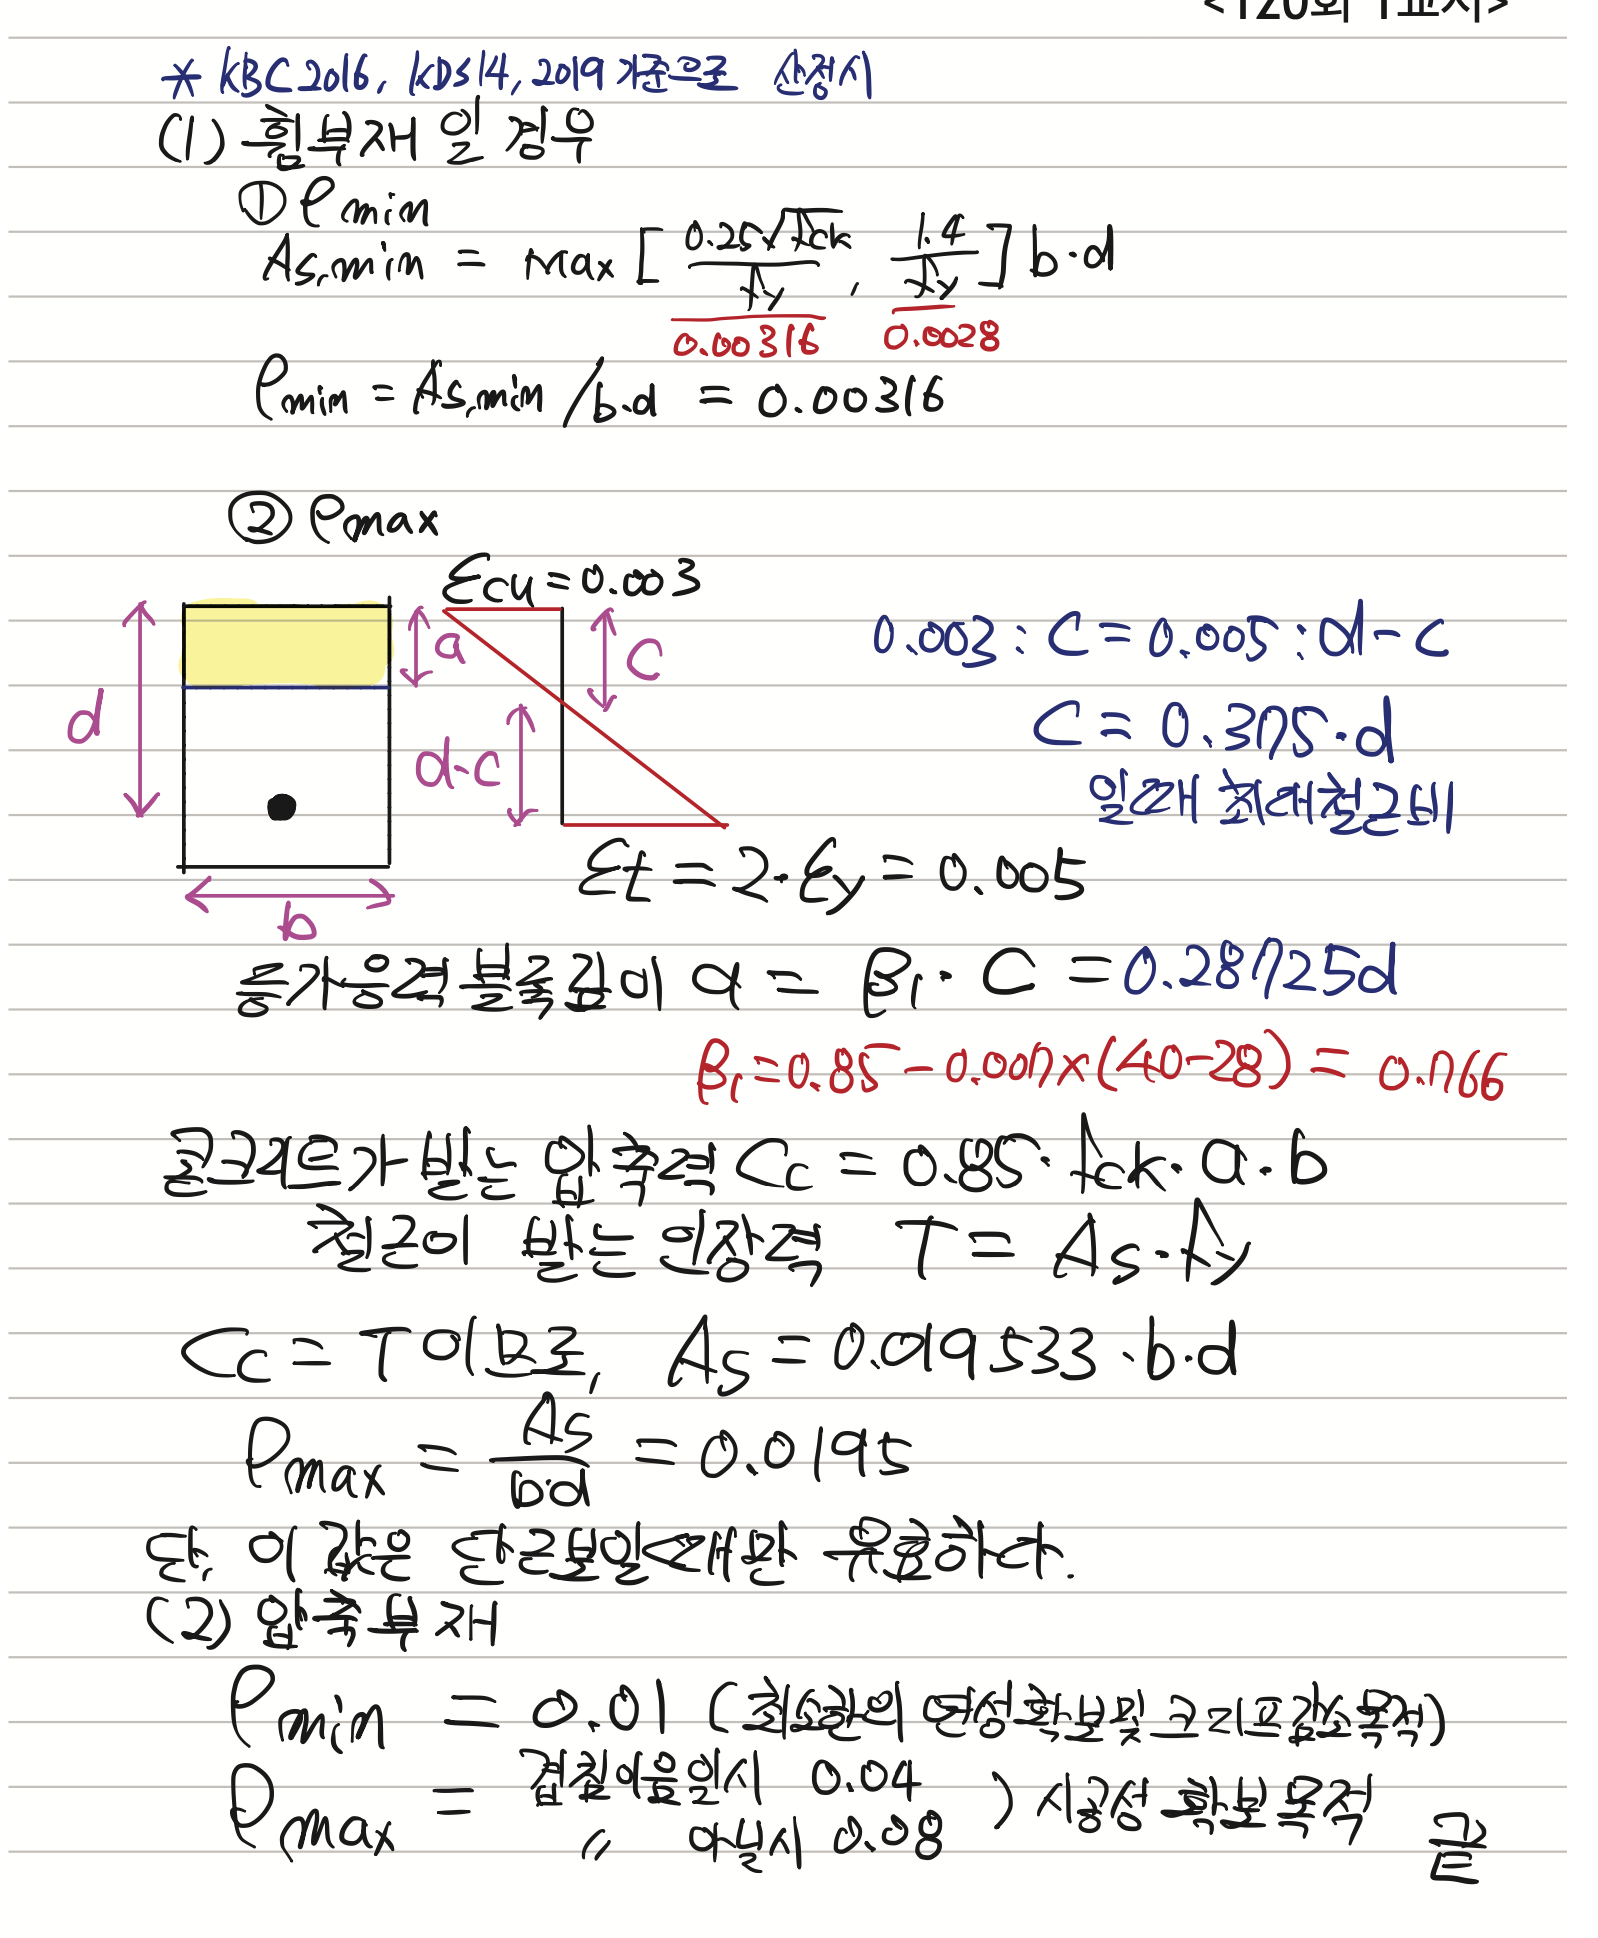 <120회 1교시>
* KBC2016, KDS14, 2019 기준으로 산정시
(1) 휨부재 일 경우
① ρmin
As,min = Max [ 0.25√fck / fy , 1.4 / fy ] b·d
0.00316 0.0028
ρmin = As,min / b·d = 0.00316
② ρmax
εcu = 0.003
a
c
d
d-c
b
0.003 : C = 0.005 : d-c
C = 0.375·d
일때 최대철근비
εt = 2·εy = 0.005
등가응력블록깊이 a = β1·C = 0.28725d
β1 = 0.85 - 0.007×(40-28) = 0.766
콘크리트가 받는 압축력 Cc = 0.85·fck·a·b
철근이 받는 인장력 T = As·fy
Cc = T 이므로, As = 0.019533·b·d
ρmax = As / bd = 0.0195
단, 이 값은 단근보일때만 유효하다.
(2) 압축부재
ρmin = 0.01 (최소한의 연성확보 및 크리프감소목적)
ρmax = 겹침이음일시 0.04
〃 아닐시 0.08 ) 시공성 확보 목적
끝